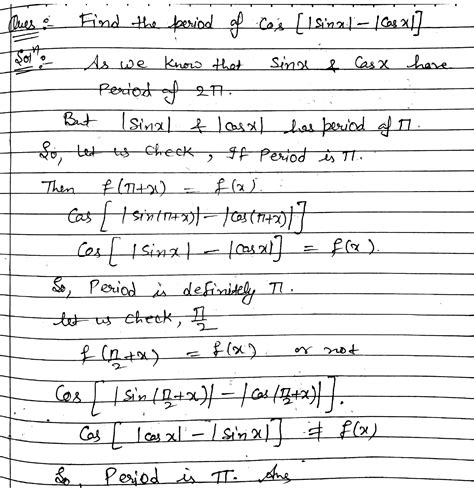 Ques :- Find the period of Cos [|Sinx| - |Cosx|]
Solⁿ :- As we know that Sinx & Cosx have
Period of 2π.
But |Sinx| & |cosx| has period of π.
So, let us check, If Period is π.
Then f(π+x) = f(x).
Cos [ |sin(π+x)| - |cos(π+x)| ]
Cos [ |Sinx| - |cosx| ] = f(x).
So, Period is definitely π.
let us check, π/2
f(π/2+x) = f(x) or not
Cos [ |sin(π/2+x)| - |Cos(π/2+x)| ].
Cos [ |cosx| - |sinx| ] ≠ f(x)
So, Period is π. Ans